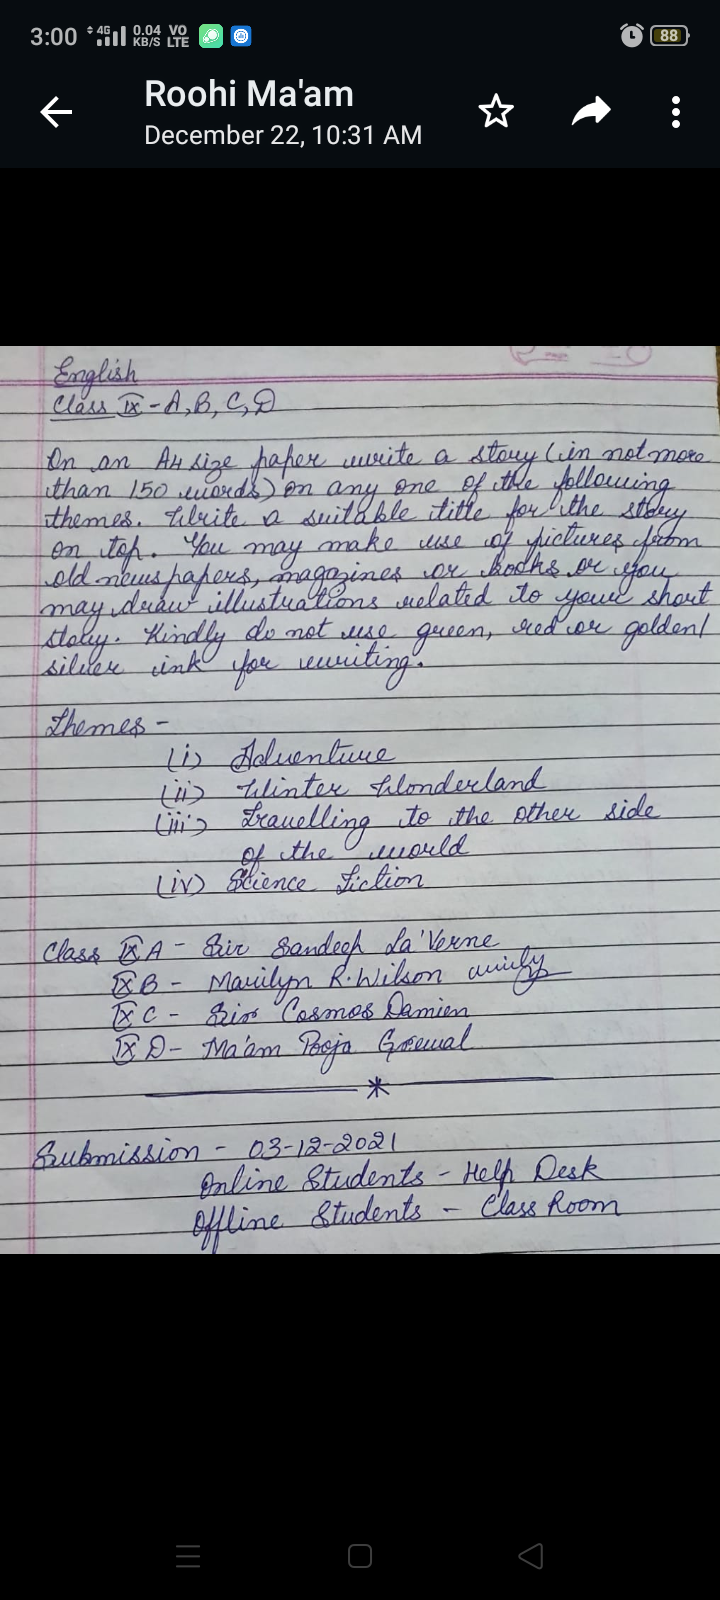 3:00 4G 0.04 KB/S VO LTE 88
Roohi Ma'am
December 22, 10:31 AM
English
Class IX - A, B, C, D
On an A4 size paper write a story (in not more
than 150 words) on any one of the following
themes. Write a suitable title for the story
on top. You may make use of pictures from
old newspapers, magazines or books or you
may draw illustrations related to your short
story. Kindly do not use green, red or golden/
silver ink for writing.
Themes -
(i) Adventure
(ii) Winter Wonderland
(iii) Travelling to the other side
of the world
(iv) Science Fiction
Class IX A - Sir Sandeep La'Verne
IX B - Marilyn R. Wilson
IX C - Sir Cosmos Damien
IX D - Ma'am Pooja Grewal
Submission - 03-12-2021
Online Students - Help Desk
Offline Students - Class Room